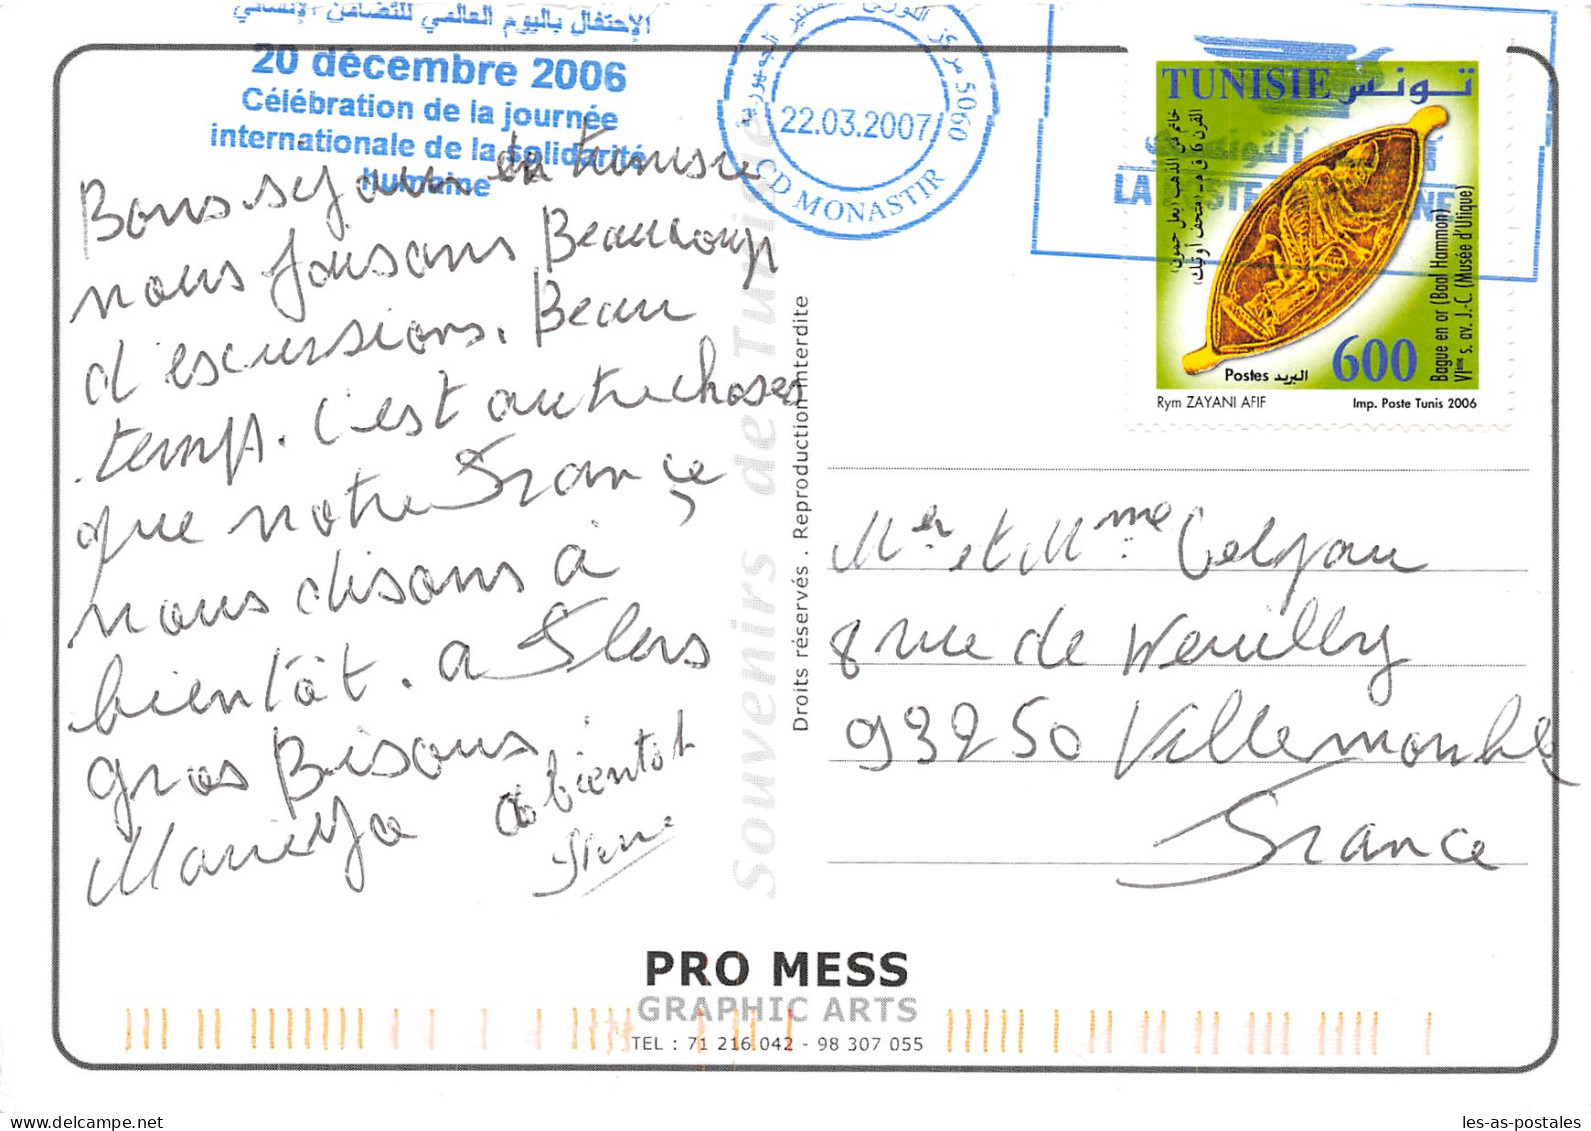 الإحتفال باليوم العالمي للتضامن الإنساني
20 décembre 2006
Célébration de la journée
internationale de la solidarité
humaine
22.03.2007
5060
CD MONASTIR
TUNISIE تونس
خاتم من الذهب (بعل حمون)
القرن 6 ق.م. (متحف أوتيك)
Bague en or (Baal Hammon)
VIème s. av. J.-C. (Musée d'Utique)
Postes البريد 600
Rym ZAYANI AFIF Imp. Poste Tunis 2006
Bons sejour en tunisie
nous faisons Beaucoup
d'escursions. Beau
temps. C'est autre choses
que notre France
nous disons à
bientôt. a Flers
gros Bisous
a bientot
Pierre
Souvenirs de Tunisie
Droits réservés . Reproduction interdite
Mer et Mme
8 rue de Neuilly
93250 Villemomble
France
PRO MESS
GRAPHIC ARTS
TEL : 71 216 042 - 98 307 055
les-as-postales